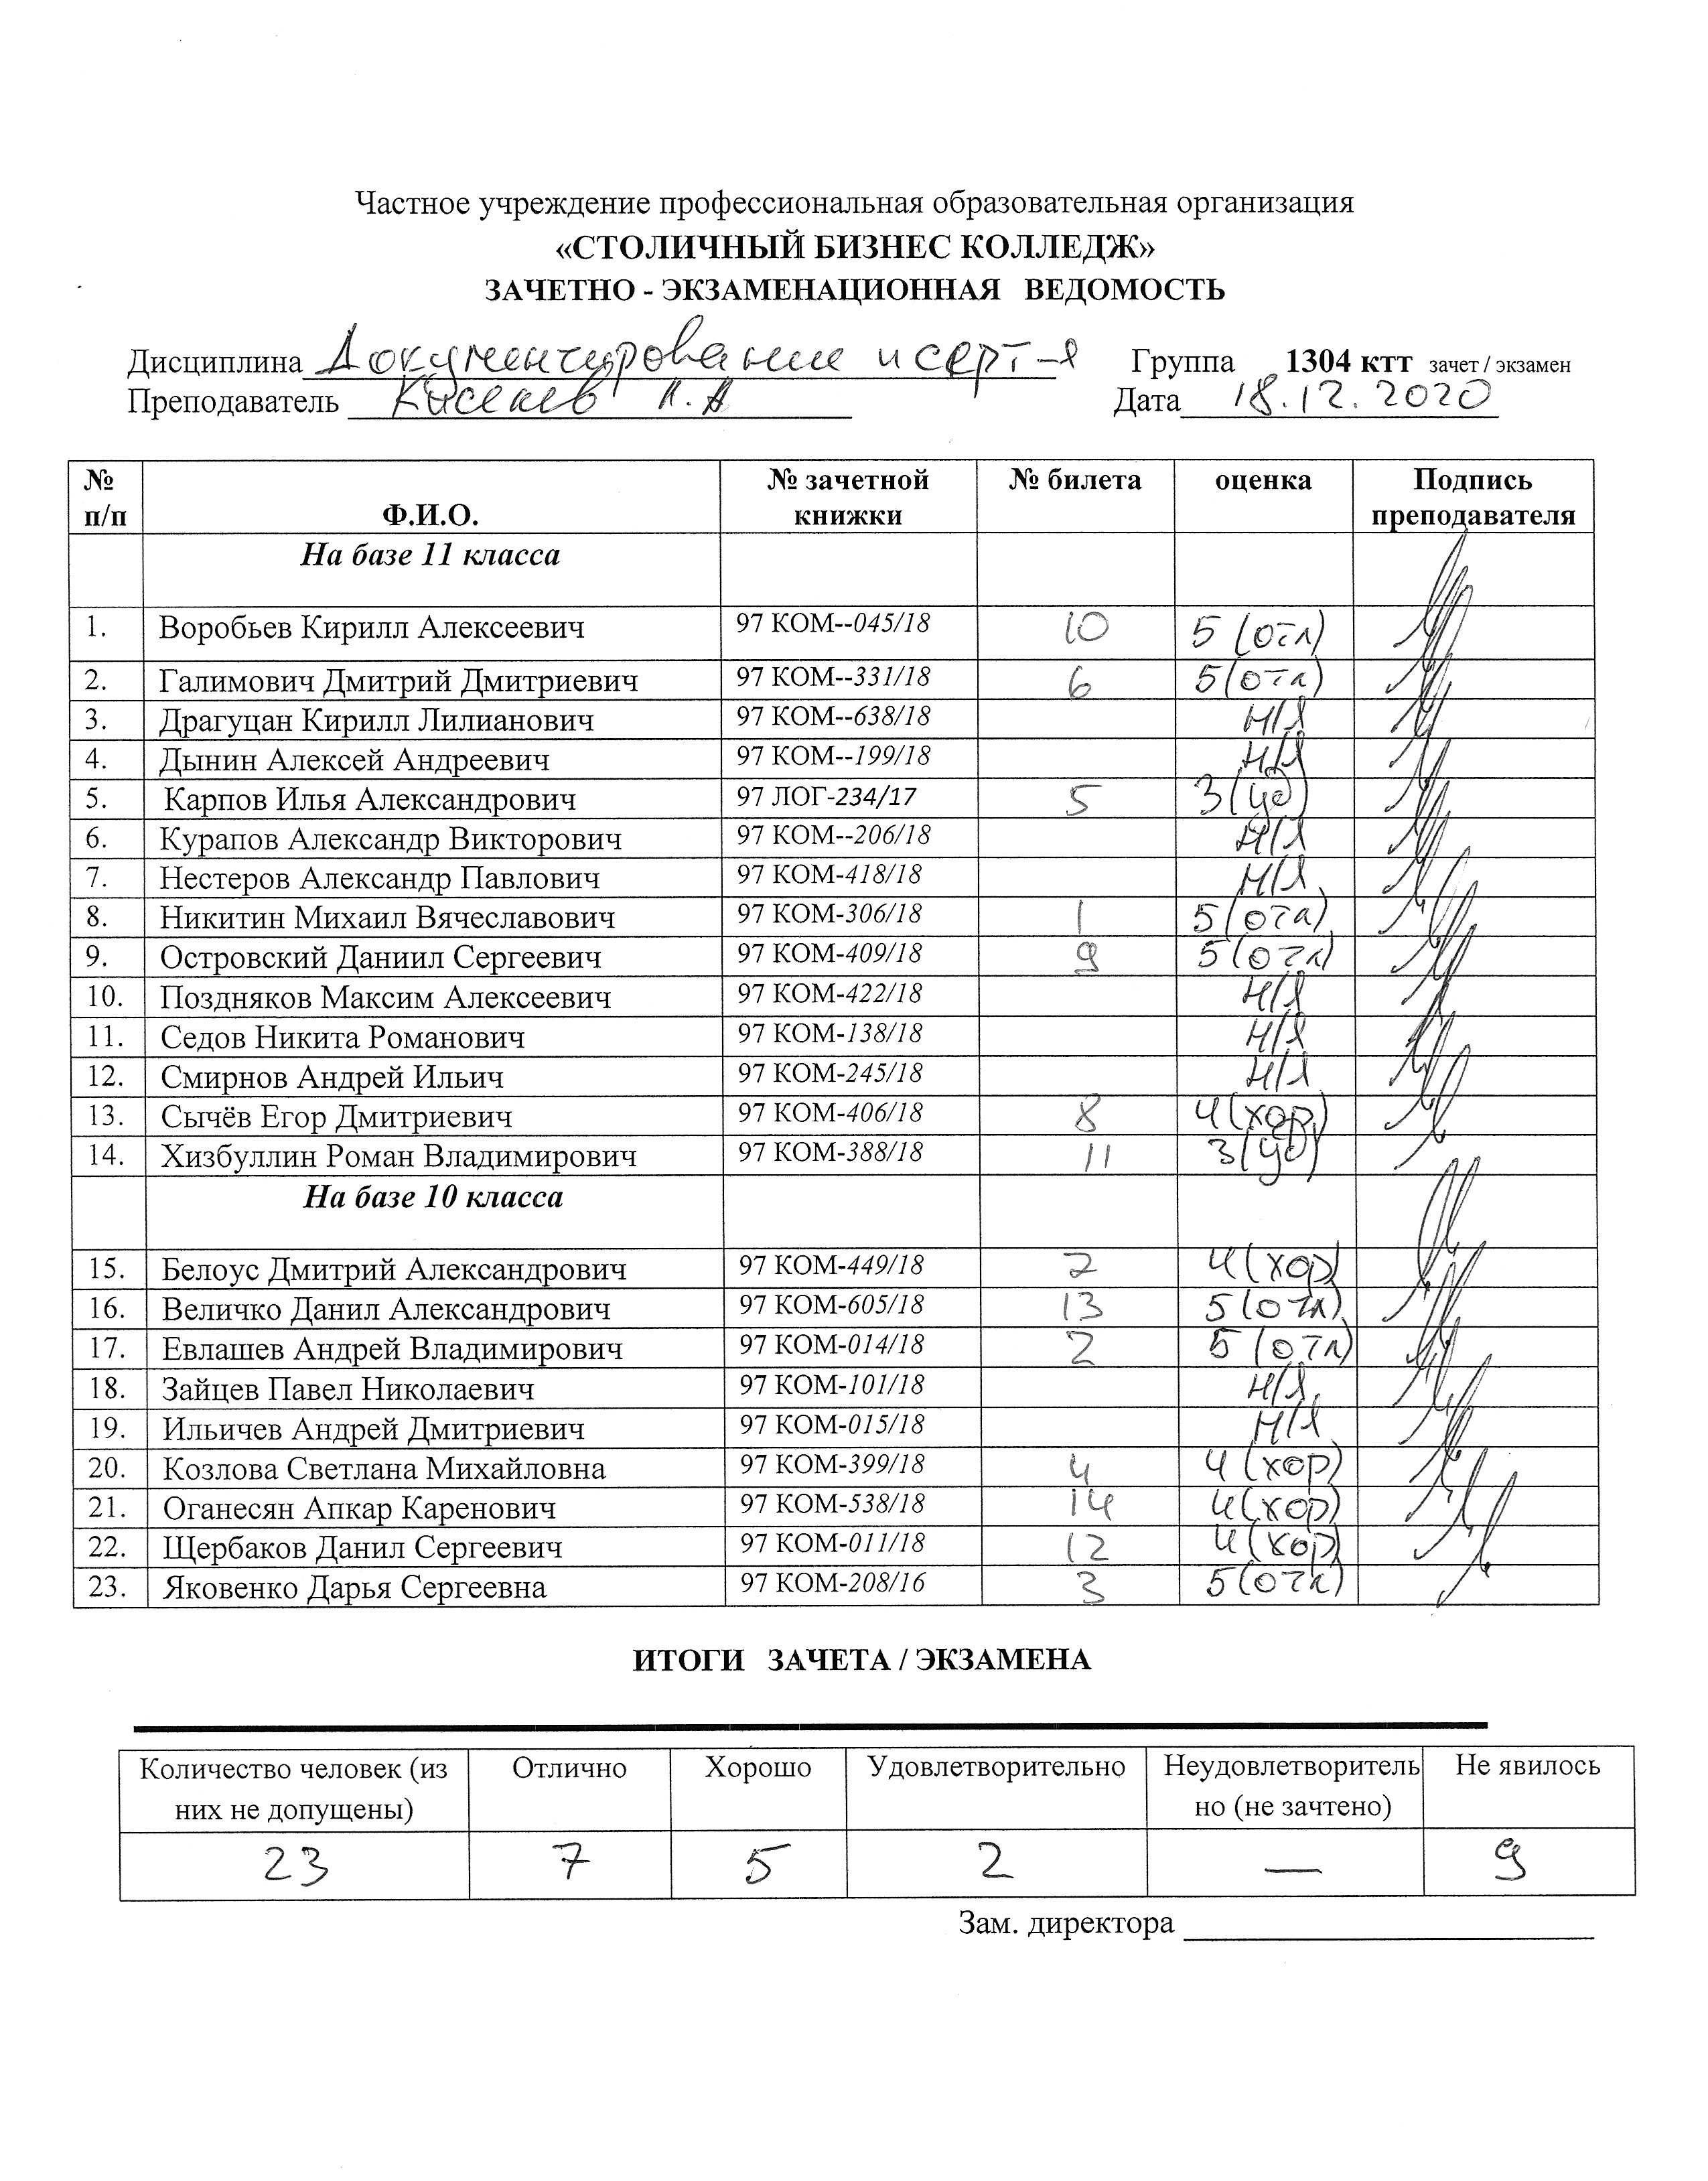 Частное учреждение профессиональная образовательная организация
«СТОЛИЧНЫЙ БИЗНЕС КОЛЛЕДЖ»
ЗАЧЕТНО - ЭКЗАМЕНАЦИОННАЯ ВЕДОМОСТЬ
Дисциплина Документирование и серт-я Группа 1304 ктт зачет / экзамен
Преподаватель Дата 18.12.2020
№ п/п Ф.И.О. № зачетной книжки № билета оценка Подпись преподавателя
На базе 11 класса
1. Воробьев Кирилл Алексеевич 97 КОМ--045/18 10 5 (отл)
2. Галимович Дмитрий Дмитриевич 97 КОМ--331/18 6 5 (отл)
3. Драгуцан Кирилл Лилианович 97 КОМ--638/18 н/я
4. Дынин Алексей Андреевич 97 КОМ--199/18 н/я
5. Карпов Илья Александрович 97 ЛОГ-234/17 5 3 (уд)
6. Курапов Александр Викторович 97 КОМ--206/18 н/я
7. Нестеров Александр Павлович 97 КОМ-418/18 н/я
8. Никитин Михаил Вячеславович 97 КОМ-306/18 1 5 (отл)
9. Островский Даниил Сергеевич 97 КОМ-409/18 9 5 (отл)
10. Поздняков Максим Алексеевич 97 КОМ-422/18 н/я
11. Седов Никита Романович 97 КОМ-138/18 н/я
12. Смирнов Андрей Ильич 97 КОМ-245/18 н/я
13. Сычёв Егор Дмитриевич 97 КОМ-406/18 8 4 (хор)
14. Хизбуллин Роман Владимирович 97 КОМ-388/18 11 3 (уд)
На базе 10 класса
15. Белоус Дмитрий Александрович 97 КОМ-449/18 7 4 (хор)
16. Величко Данил Александрович 97 КОМ-605/18 13 5 (отл)
17. Евлашев Андрей Владимирович 97 КОМ-014/18 2 5 (отл)
18. Зайцев Павел Николаевич 97 КОМ-101/18 н/я
19. Ильичев Андрей Дмитриевич 97 КОМ-015/18 н/я
20. Козлова Светлана Михайловна 97 КОМ-399/18 4 4 (хор)
21. Оганесян Апкар Каренович 97 КОМ-538/18 14 4 (хор)
22. Щербаков Данил Сергеевич 97 КОМ-011/18 12 4 (хор)
23. Яковенко Дарья Сергеевна 97 КОМ-208/16 3 5 (отл)
ИТОГИ ЗАЧЕТА / ЭКЗАМЕНА
Количество человек (из них не допущены) Отлично Хорошо Удовлетворительно Неудовлетворительно (не зачтено) Не явилось
23 7 5 2 — 9
Зам. директора